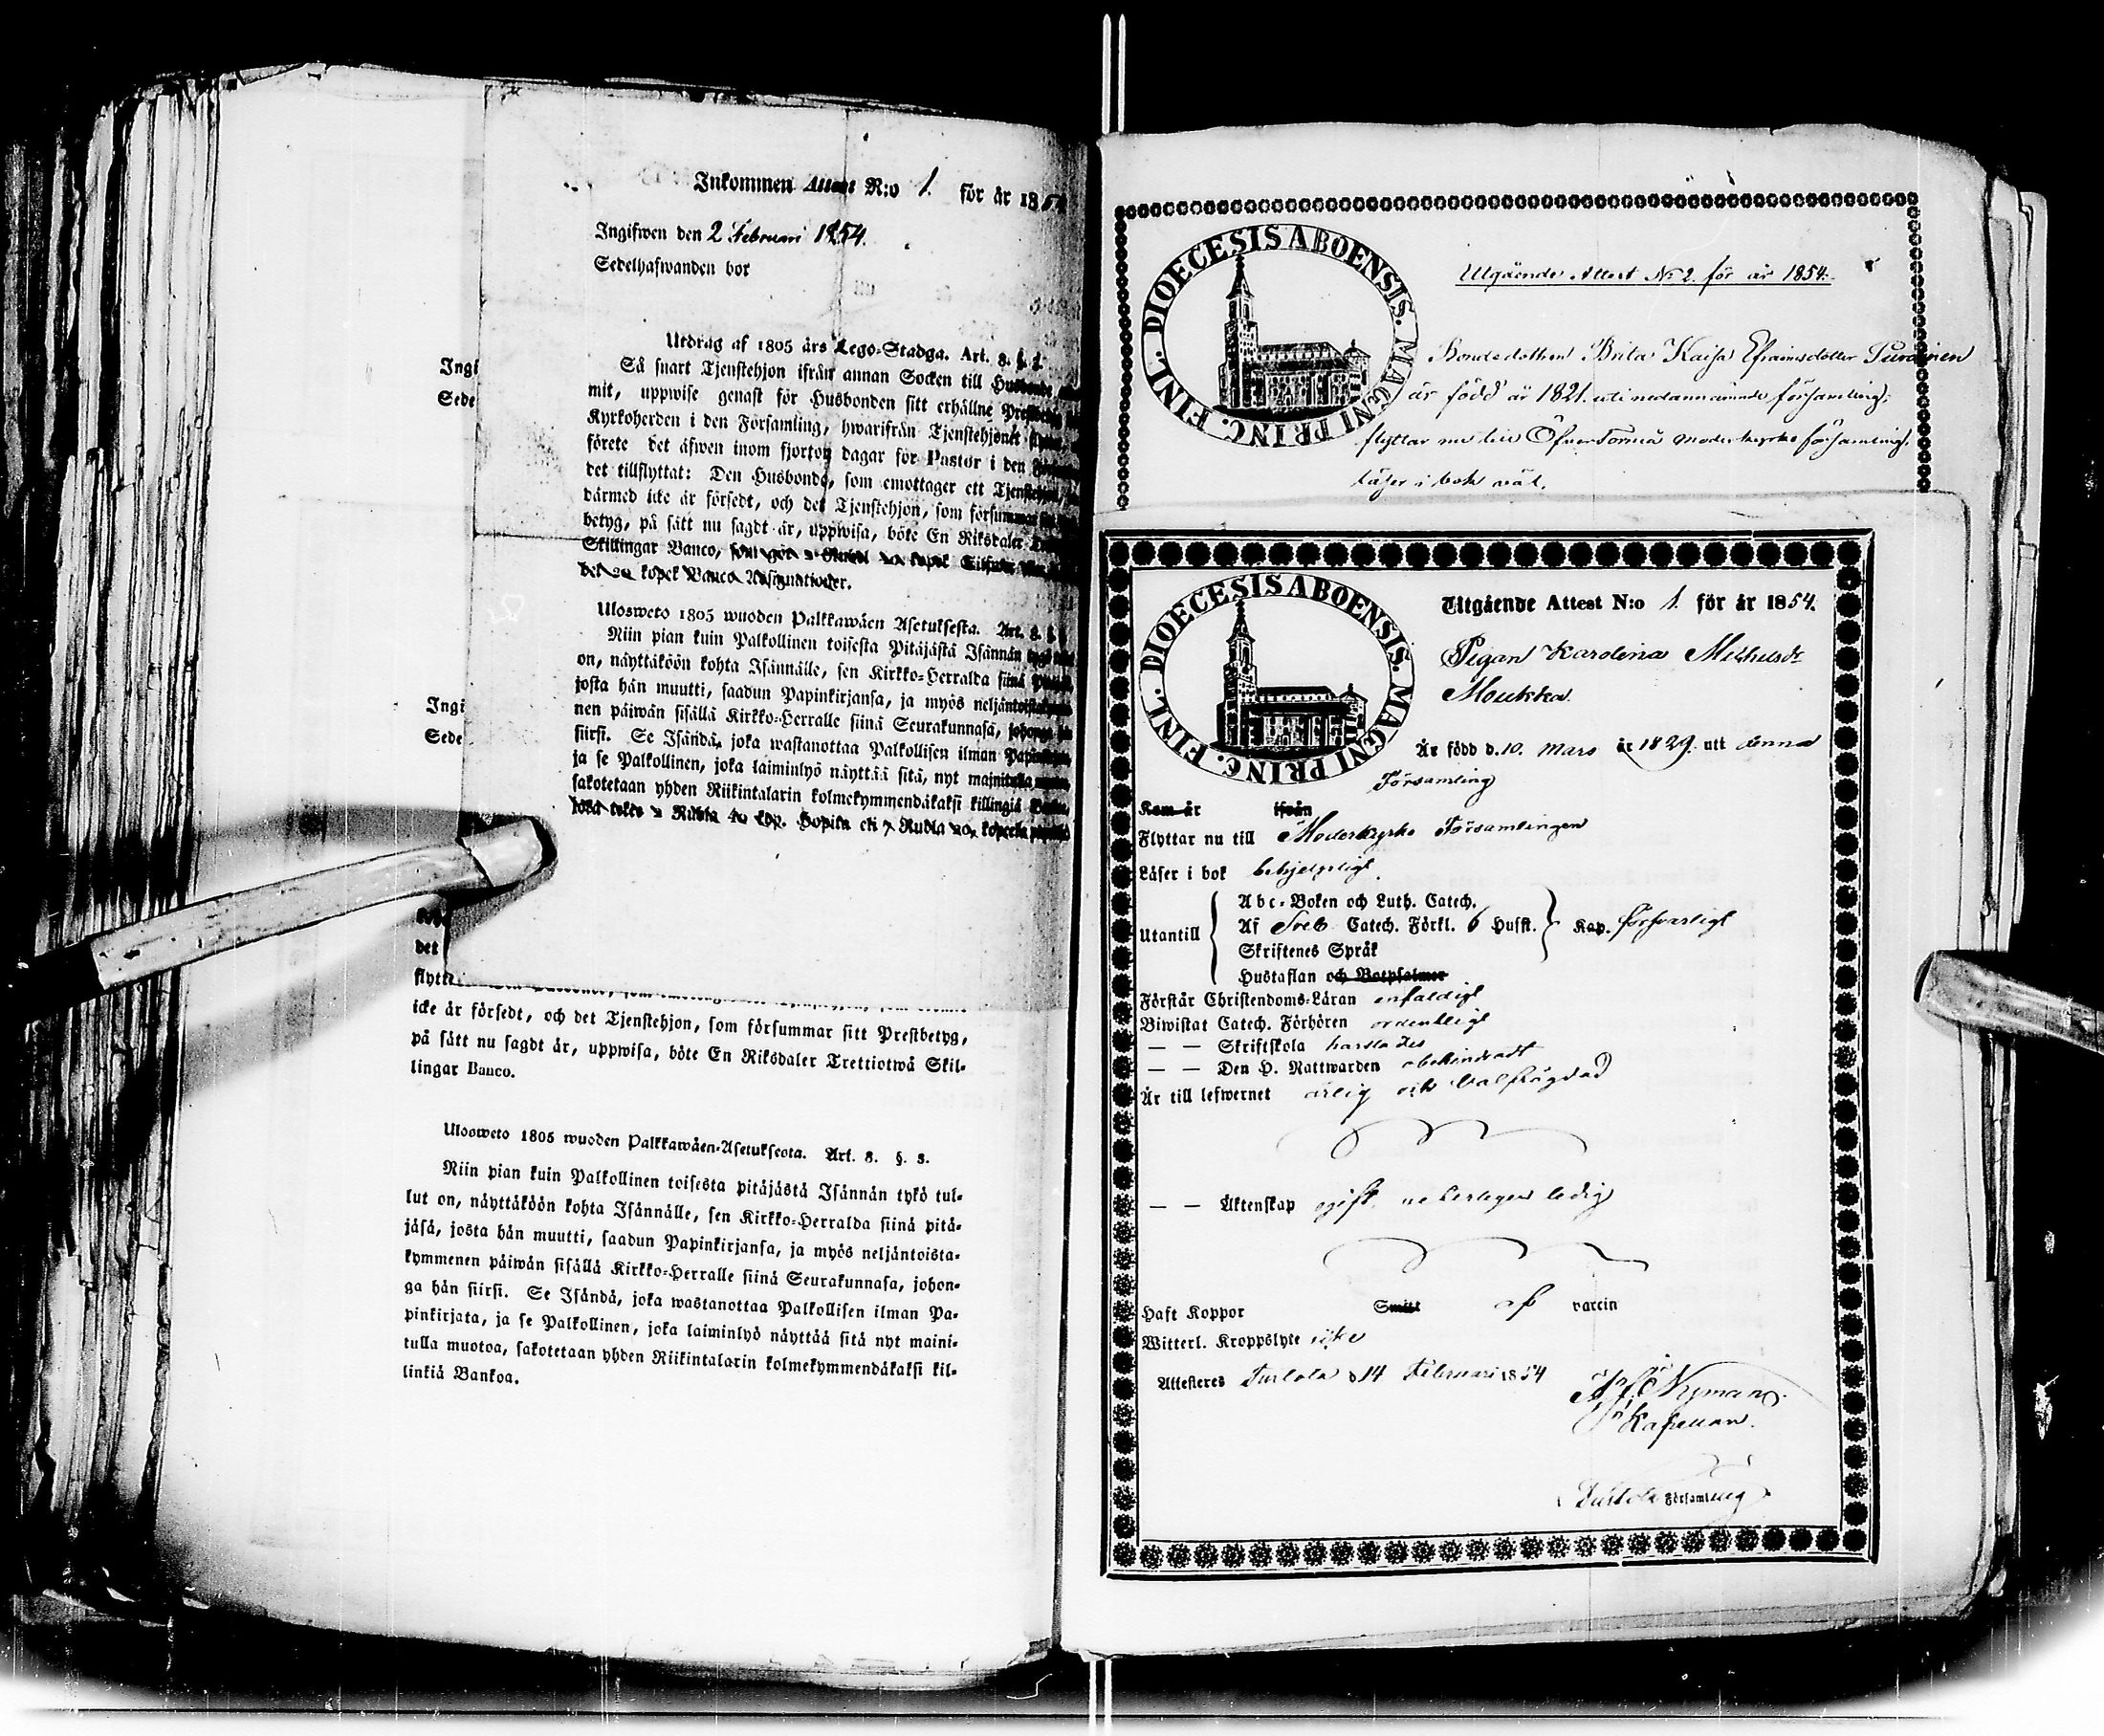 Inkommen Attest N:o 1. för år 1854
Ingifwen den 2 Februari 1854.
Sedelhafwanden bor
Utdrag af 1805 års Lego-Stadga. Art. 8. §. 3.
Så snart Tjenstehjon ifrån annan Socken till
mit, uppwise genast för Husbonden sitt erhållne
Kyrkoherden i den Församling, hwarifrån Tjenstehjonet
förete det äfwen inom fjorton dagar för Pastor i den
det tillflyttat: Den Husbonde, som emottager ett
därmed icke är försedt, och det Tjenstehjon, som försummar
betyg, på sätt nu sagdt är, uppwisa, böte En Riksdaler
Skillingar Banco,
kopek Banco Assignationer.
Ulosweto 1805 wuoden Palkkawäen Asetuksesta. Art. 8. §.
Niin pian kuin Palkollinen toisesta Pitäjästä Isännän
on, näyttäköön kohta Isännälle, sen Kirkko-Herralda siinä
josta hän muutti, saadun Papinkirjansa, ja myös
nen päiwän sisällä Kirkko-Herralle siinä Seurakunnasa,
siirsi. Se Isändä, joka wastanottaa Palkollisen ilman
ja se Palkollinen, joka laiminlyö näyttää sitä, nyt mainitulla
sakotetaan yhden Riikintalarin kolmekymmendäkaksi killingiä
Ingi
Sede
Ingi
Sede
det
flytt
icke är försedt, och det Tjenstehjon, som försummar sitt Prestbetyg,
på sätt nu sagdt är, uppwisa, böte En Riksdaler Trettiotwå Skil-
lingar Banco.
Ulosweto 1805 wuoden Palkkawäen-Asetuksesta. Art. 8. §. 3.
Niin pian kuin Palkollinen toisesta pitäjästä Isännän tykö tul-
lut on, näyttäköön kohta Isännälle, sen Kirkko-Herralda siinä pitä-
jäsä, josta hän muutti, saadun Papinkirjansa, ja myös neljäntoista-
kymmenen päiwän sisällä Kirkko-Herralle siinä Seurakunnasa, johon-
ga hän siirsi. Se Isändä, joka wastanottaa Palkollisen ilman Pa-
pinkirjata, ja se Palkollinen, joka laiminlyö näyttää sitä nyt maini-
tulla muotoa, sakotetaan yhden Riikintalarin kolmekymmendäkaksi kil-
linkiä Bankoa.
DIOECESIS ABOENSIS. MAGNI PRINC. FINL.
Utgående Attest No 2. för år 1854.
Bondedottren Brita Kaisa Efraimsdotter
är född år 1821. uti nedannämnde församling;
flyttar nu till Öfver Torneå moderkyrko församling,
läser i bok väl.
DIOECESIS ABOENSIS. MAGNI PRINC. FINL.
Utgående Attest N:o 1. för år 1854.
Pigan Karolina Michelsdr
Moukka.
Är född d. 10. Mars år 1829. uti denna
Församling
Kom år ifrån
Flyttar nu till Moderkyrko Församlingen
Läser i bok behjelpligt.
Utantill
Abc-Boken och Luth. Catech.
Af Sveb. Catech. Förkl. 6 Hufst. Kap. försvarligt
Skriftenes Språk
Hustaflan och Botpsalmer
Förstår Christendoms-Läran enfaldigt
Biwistat Catech. Förhören ordentligt
— — Skriftskola
— — Den H. Nattwarden obehindradt
Är till lefwernet ärlig och välfrägdad
— — Äktenskap ogift. ledig
Haft Koppor Smitt af vaccin
Witterl. Kroppslyte icke
Attesteres Turtola d 14 Februari 1854
Nyman
Kapellan.
Turtola Församling